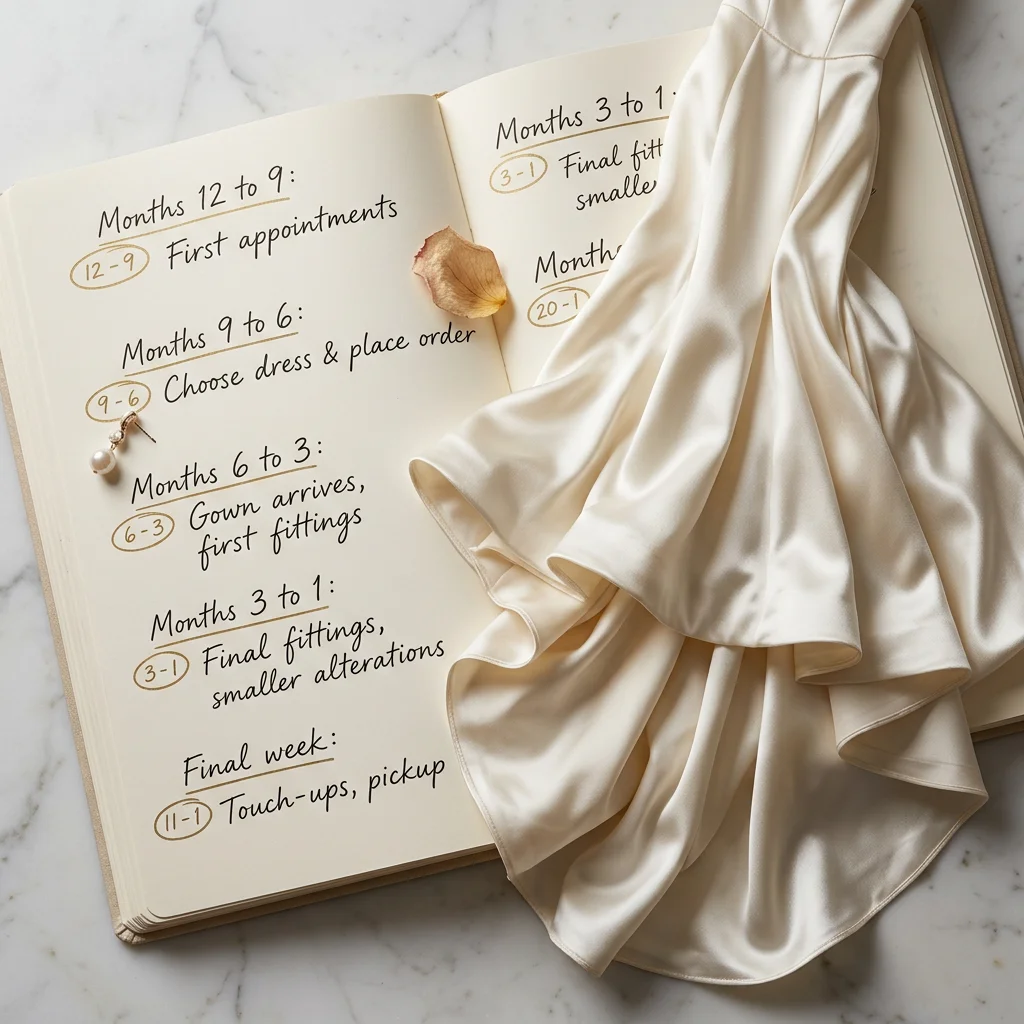 Months 12 to 9:
12-9 First appointments
Months 9 to 6:
9-6 Choose dress & place order
Months 6 to 3:
6-3 Gown arrives,
first fittings
Months 3 to 1:
3-1 Final fittings,
smaller alterations
Final week:
11-1 Touch-ups, pickup
Months 3 to 1:
3-1 Final
Months
20-1